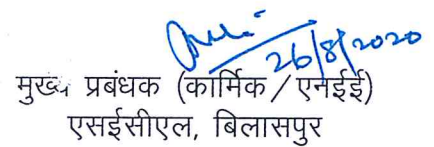 26/8/2020
मुख्य प्रबंधक (कार्मिक / एनईई)
एसईसीएल, बिलासपुर